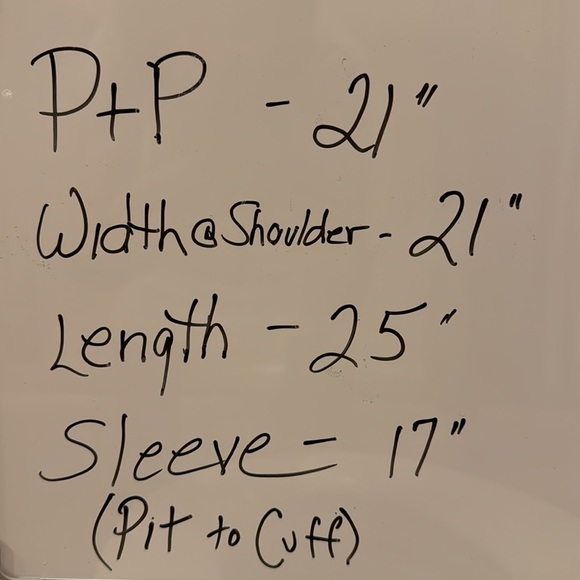 P+P - 21"
Width@Shoulder - 21"
Length - 25"
Sleeve - 17"
(Pit to Cuff)